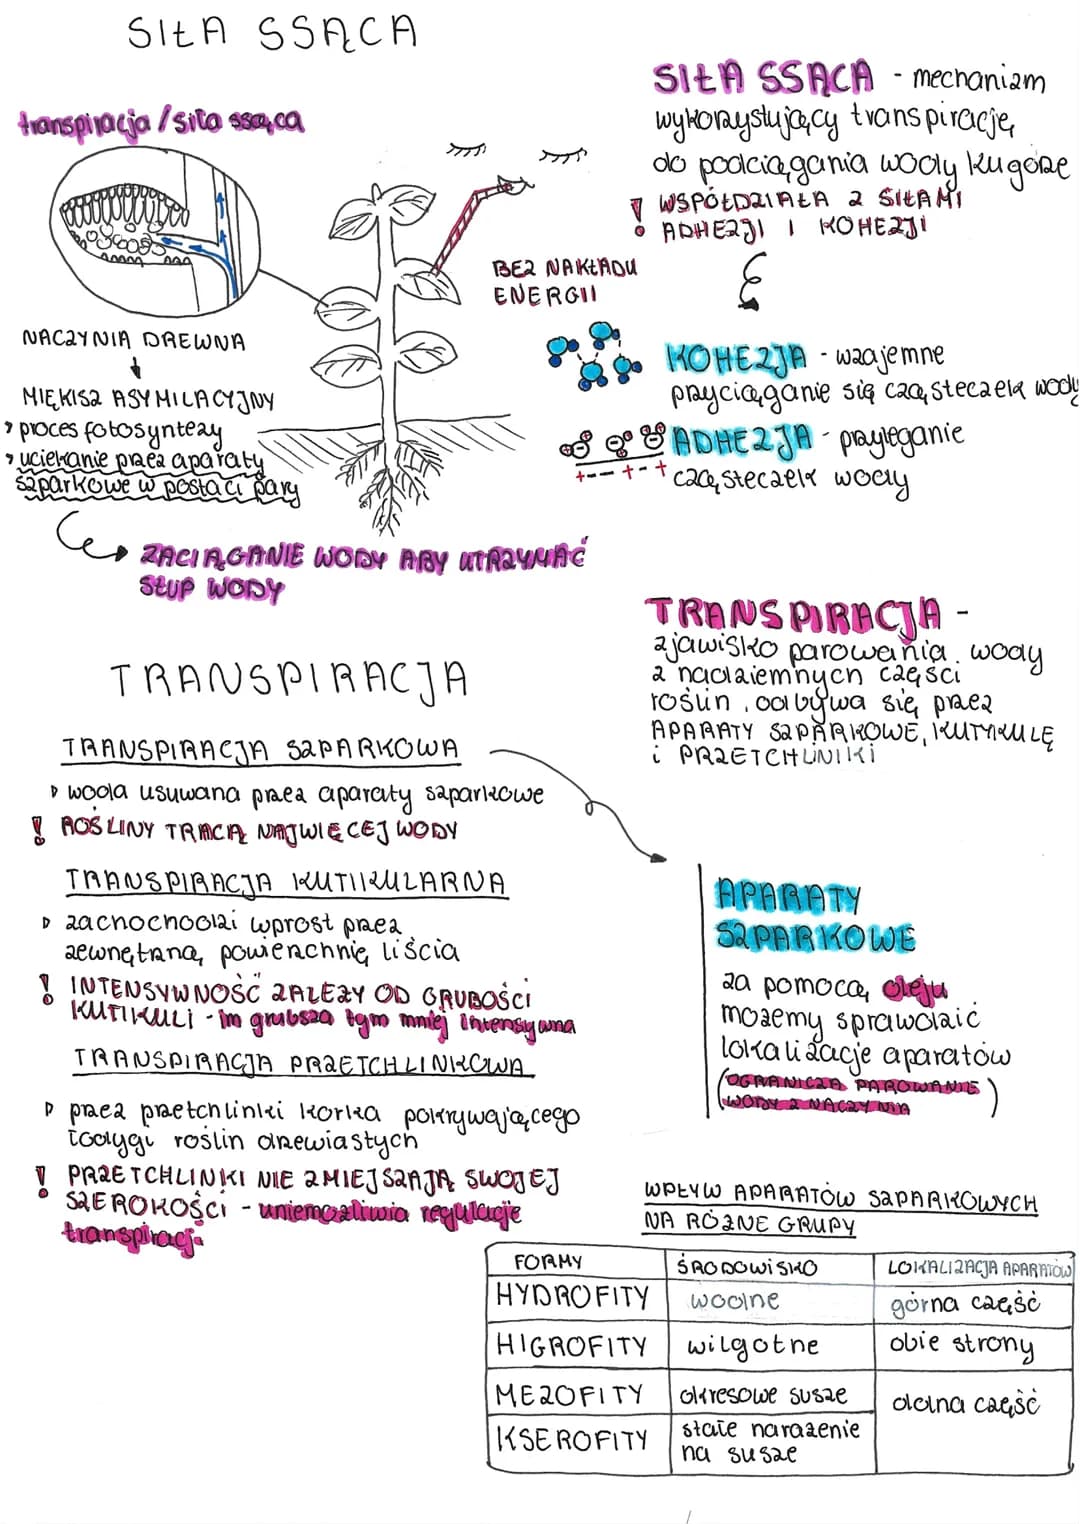 SIŁA SSĄCA
transpiracja / siła ssąca
NACZYNIA DREWNA
MIĘKISZ ASYMILACYJNY
proces fotosyntezy
uciekanie przez aparaty
szparkowe w postaci pary
ZACIĄGANIE WODY ABY UTRZYMAĆ
SŁUP WODY
BEZ NAKŁADU
ENERGII
SIŁA SSĄCA - mechanizm
wykorzystujący transpirację,
do podciągania wody ku górze
! WSPÓŁDZIAŁA Z SIŁAMI
ADHEZJI I KOHEZJI
KOHEZJA - wzajemne
przyciąganie się cząsteczek wody
ADHEZJA - przyleganie
cząsteczek wody
+ - - + - +
TRANSPIRACJA -
zjawisko parowania wody
z nadziemnych części
roślin, odbywa się przez
APARATY SZPARKOWE, KUTYKULĘ
i PRZETCHLINKI
TRANSPIRACJA
TRANSPIRACJA SZPARKOWA
woda usuwana przez aparaty szparkowe
! ROŚLINY TRACĄ NAJWIĘCEJ WODY
TRANSPIRACJA KUTIKULARNA
zachochodzi wprost przez
zewnętrzną powierzchnię liścia
! INTENSYWNOŚĆ ZALEŻY OD GRUBOŚCI
KUTIKULI - im grubsza tym mniej intensywna
TRANSPIRACJA PRZETCHLINKOWA
przez przetchlinki korka pokrywającego
łodygi roślin drzewiastych
! PRZETCHLINKI NIE ZMIEJSZAJĄ SWOJEJ
SZEROKOŚCI - uniemożliwia regulację
transpiracji
APARATY
SZPARKOWE
za pomocą oleju
możemy sprawdzić
lokalizacje aparatów
(OGRANICZA PAROWANIE
WODY Z NACZYNIA)
WPŁYW APARATÓW SZPARKOWYCH
NA RÓŻNE GRUPY
FORMY ŚRODOWISKO LOKALIZACJA APARATÓW
HYDROFITY wodne górna część
HIGROFITY wilgotne obie strony
MEZOFITY okresowe susze dolna część
KSEROFITY stałe narażenie
na susze